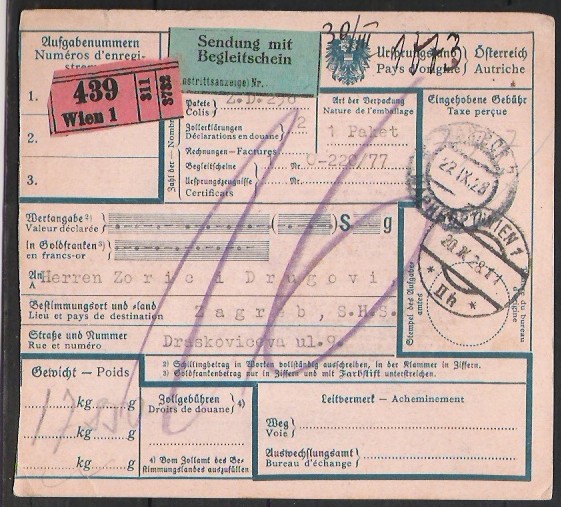 Aufgabenummern
Numéros d'enregi-
Sendung mit
Begleitschein
Zustrittsanzeige) Nr.
30/III 1813
Ursprungsland
Pays d'origine
Österreich
Autriche
439
Wien 1
311
3732
1.
2.
3.
Zahl der - Nombre
Pakete
Colis
Z.D. 298
Zollerklärungen
Déclarations en douane
2
Rechnungen - Factures
Begleitscheine Nr.
0-220/77
Ursprungszeugnisse
Certificats
Art der Verpackung
Nature de l'emballage
1 Paket
Eingehobene Gebühr
Taxe perçue
ZAGREB
22.IX.28
WIEN 1
20.IX.28.11
* IIh *
Wertangabe 2)
Valeur déclarée
S g
in Goldfranken 3)
en francs-or
An
A
Herren Zorici Drugovi,
Bestimmungsort und -land
Lieu et pays de destination
Zagreb, S.H.S.
Straße und Nummer
Rue et numéro
Draskoviceva ul.9.
Stempel des Aufgabeamtes
du bureau
d'origine
2) Schillingbetrag in Worten vollständig ausschreiben, in der Klammer in Ziffern.
3) Goldfrankenbetrag nur in Ziffern und mit Farbstift unterstreichen.
Gewicht - Poids
kg g
17 950
kg g
kg g
Zollgebühren
Droits de douane 4)
4) Vom Zollamt des Be-
stimmungslandes auszufüllen
Leitvermerk - Acheminement
Weg
Voie
Auswechslungsamt
Bureau d'échange